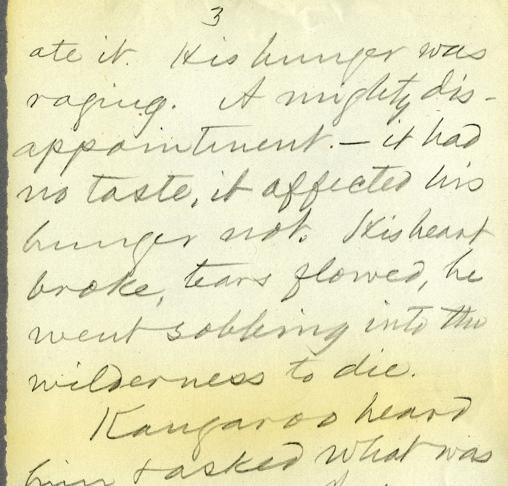 3
ate it. His hunger was
raging. A mighty dis-
appointment. — it had
no taste, it affected his
hunger not. His heart
broke, tears flowed, he
went sobbing into the
wilderness to die.
Kangaroo heard
him & asked what was